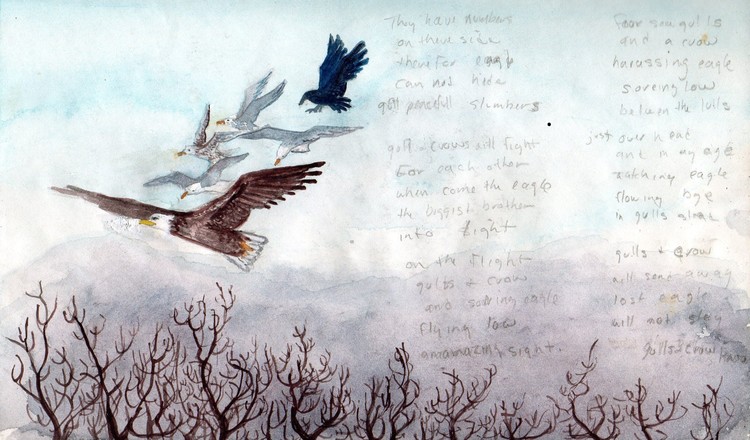 They have numbers
on there side
therefor eagle
can not hide
gull peacefull slumbers
gull + crows will fight
for each other
when come the eagle
the biggest brother
into flight
on the flight
gulls + crow
and soring eagle
flying low
amamazing sight.
four sea gulls
and a crow
harassing eagle
soreing low
between the lulls
just over head
and in my
watching eagle
flowing bye
in gulls
gulls + crow
will send away
lost eagle
will not stay
gulls + crow